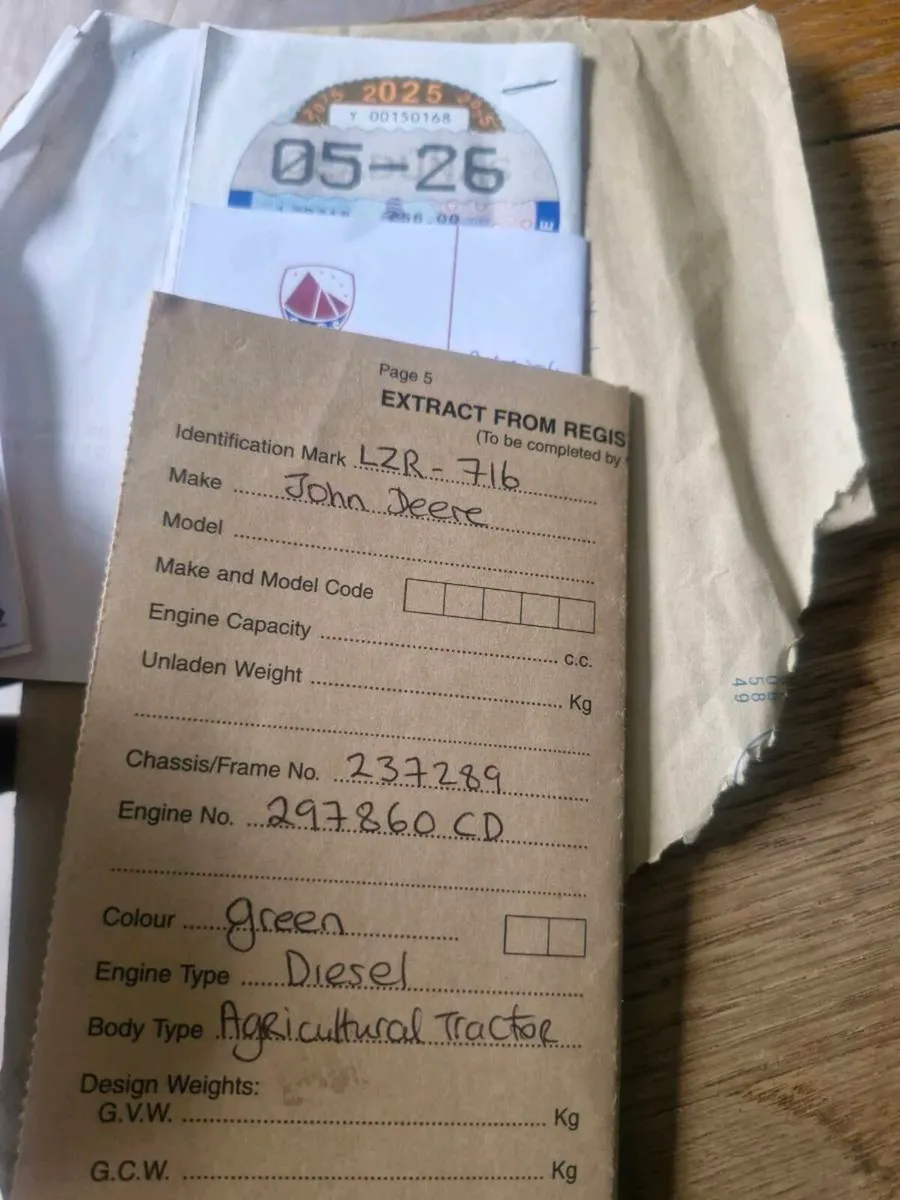 2025 2025 2025
Y 00150168
05-26
Page 5
EXTRACT FROM REGIS
(To be completed by
Identification Mark LZR-716
Make John Deere
Model
Make and Model Code
Engine Capacity c.c.
Unladen Weight Kg
Chassis/Frame No. 237289
Engine No. 297860 CD
Colour green
Engine Type Diesel
Body Type Agricultural Tractor
Design Weights:
G.V.W. Kg
G.C.W. Kg